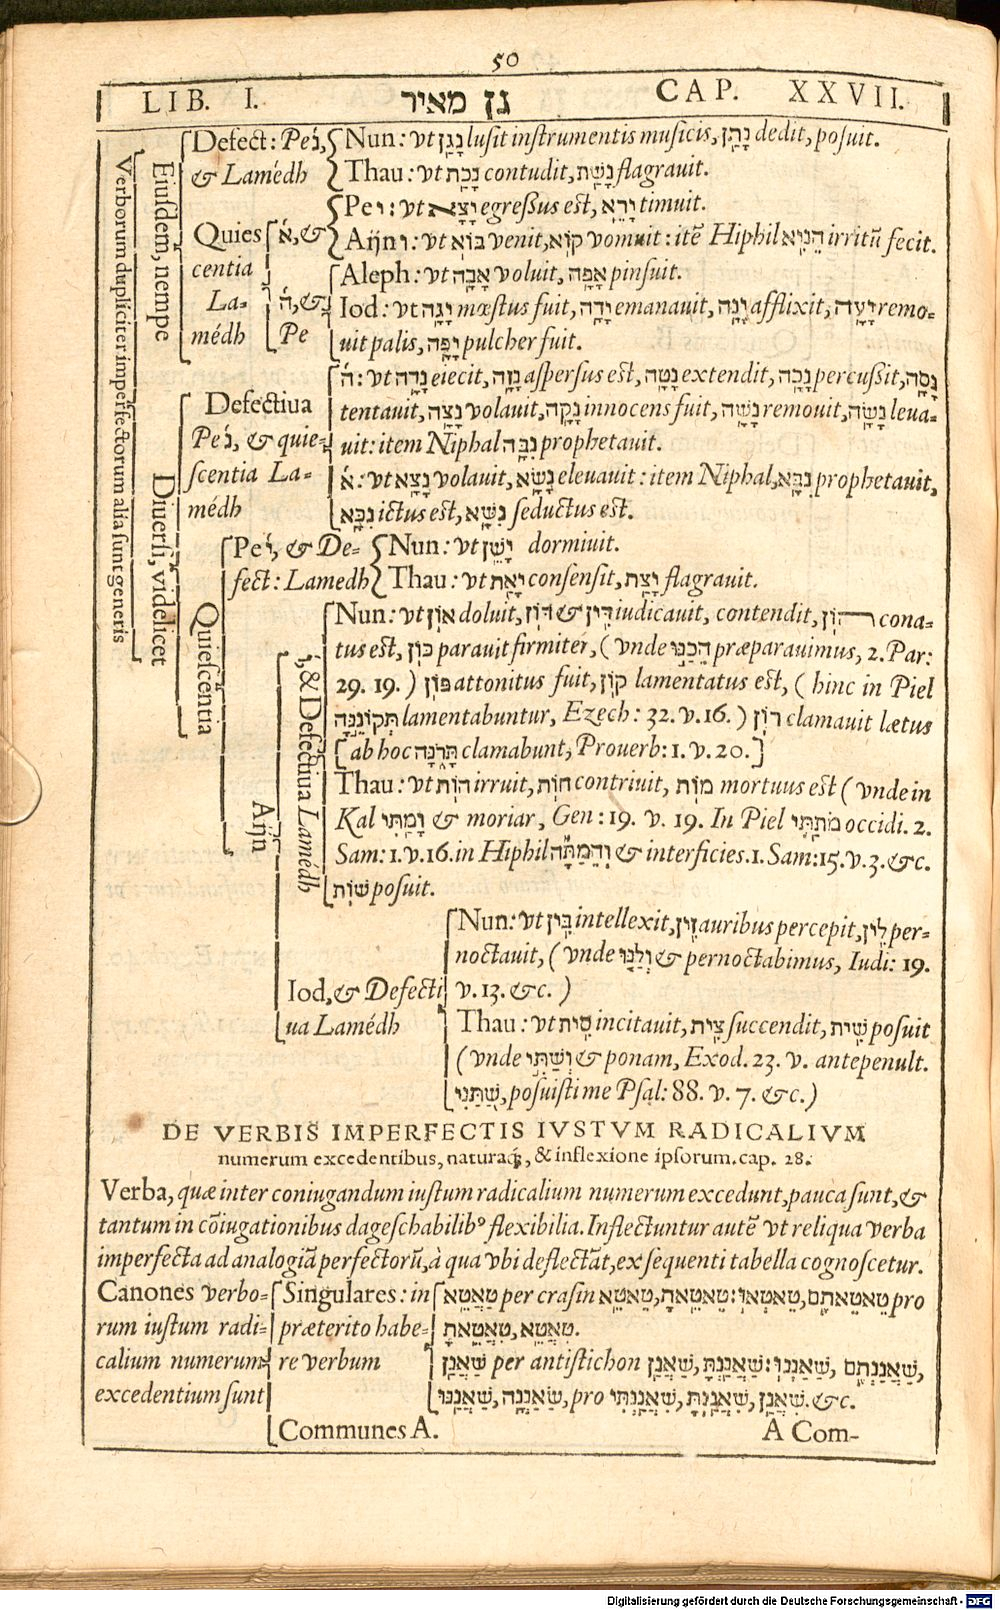 50
LIB. I. גן מאיר CAP. XXVII.
Verborum dupliciter imperfectorum alia sunt generis
Eiusdem, nempe
Defect: Pe נ, Nun: vt נָגַן lusit instrumentis musicis, נָתַן dedit, posuit.
& Lamédh Thau: vt נָכַת contudit, נָשַׁת flagrauit.
Pe י: vt יָצָא egressus est, יָרֵא timuit.
Quies א, & Aijn ו: vt בּוֹא venit, קוֹא vomuit: itē Hiphil הֵנִיא irritū fecit.
centia Aleph: vt אָבָה voluit, אָפָה pinsuit.
La- ה, & Iod: vt יָגָה mœstus fuit, יָדָה emanauit, יָנָה afflixit, יָעָה remo-
médh Pe uit palis, יָפָה pulcher fuit.
Diuersi, videlicet
ה: vt נָדָה eiecit, נָזָה aspersus est, נָטָה extendit, נָכָה percussit, נָסָה
Defectiua tentauit, נָצָה volauit, נָקָה innocens fuit, נָשָׁה remouit, נָשָׂה leua-
Pe נ, & quie- uit: item Niphal נִבָּה prophetauit.
scentia La- א: vt נָצָא volauit, נָשָׂא eleuauit: item Niphal, נִבָּא prophetauit,
médh נִכָּא ictus est, נִשָּׁא seductus est.
Quiescentia
Pe י, & De- Nun: vt יָשֵׁן dormiuit.
fect: Lamedh Thau: vt יָאַת consensit, יָצַת flagrauit.
Aijn
ו, & Defectiua Lamédh
Nun: vt אוֹן doluit, דּוֹן & דִּין iudicauit, contendit, הוֹן cona-
tus est, כּוֹן parauit firmiter, (vnde הֵכַנּוּ præparauimus, 2. Par:
29. 19.) פּוֹן attonitus fuit, קוֹן lamentatus est, (hinc in Piel
תְּקוֹנֵנָּה lamentabuntur, Ezech: 32. v. 16.) רוֹן clamauit lætus
[ab hoc תָּרֹנָּה clamabunt, Prouerb: 1. v. 20.]
Thau: vt הוֹת irruit, חוֹת contriuit, מוֹת mortuus est (vnde in
Kal וָמַתִּי & moriar, Gen: 19. v. 19. In Piel מֹתַתִּי occidi. 2.
Sam: 1. v. 16. in Hiphil וְהֵמַתָּה & interficies. 1. Sam: 15. v. 3. &c.
שׁוֹת posuit.
Nun: vt בִּין intellexit, זִין auribus percepit, לִין per-
noctauit, (vnde וְלַנּוּ & pernoctabimus, Iudi: 19.
Iod, & Defecti v. 13. &c.)
ua Lamédh Thau: vt סִית incitauit, צִית succendit, שִׁית posuit
(vnde וְשַׁתִּי & ponam, Exod. 23. v. antepenult.
שַׁתַּנִי, posuisti me Psal: 88. v. 7. &c.)
DE VERBIS IMPERFECTIS IVSTVM RADICALIVM
numerum excedentibus, naturaq́;, & inflexione ipsorum. cap. 28.
Verba, quæ inter coniugandum iustum radicalium numerum excedunt, pauca sunt, &
tantum in cōiugationibus dageschabilibꝰ flexibilia. Inflectuntur autē vt reliqua verba
imperfecta ad analogiā perfectorū, à qua vbi deflectāt, ex sequenti tabella cognoscetur.
Canones verbo- Singulares: in טַאֲטֵא per crasin טֵאטֵא, טֵאטֵאתָ, טֵאטְאוּ: טֵאטֵאתֶם, pro
rum iustum radi- præterito habe- טִאֲטֵא, טִאֲטֵאתָ.
calium numerum re verbum שַׁאֲנַן per antistichon שַׁאֲנַן, שַׁאֲנַנְתָּ, שַׁאֲנְנוּ: שַׁאֲנַנְתֶּם,
excedentium sunt שַׁאֲנַנּוּ, שַׁאַנְנָה, pro שִׁאֲנַנְתִּי, שִׁאֲנַנְתָּ, שִׁאֲנַן. &c.
Communes A. A Com-
Digitalisierung gefördert durch die Deutsche Forschungsgemeinschaft - DFG